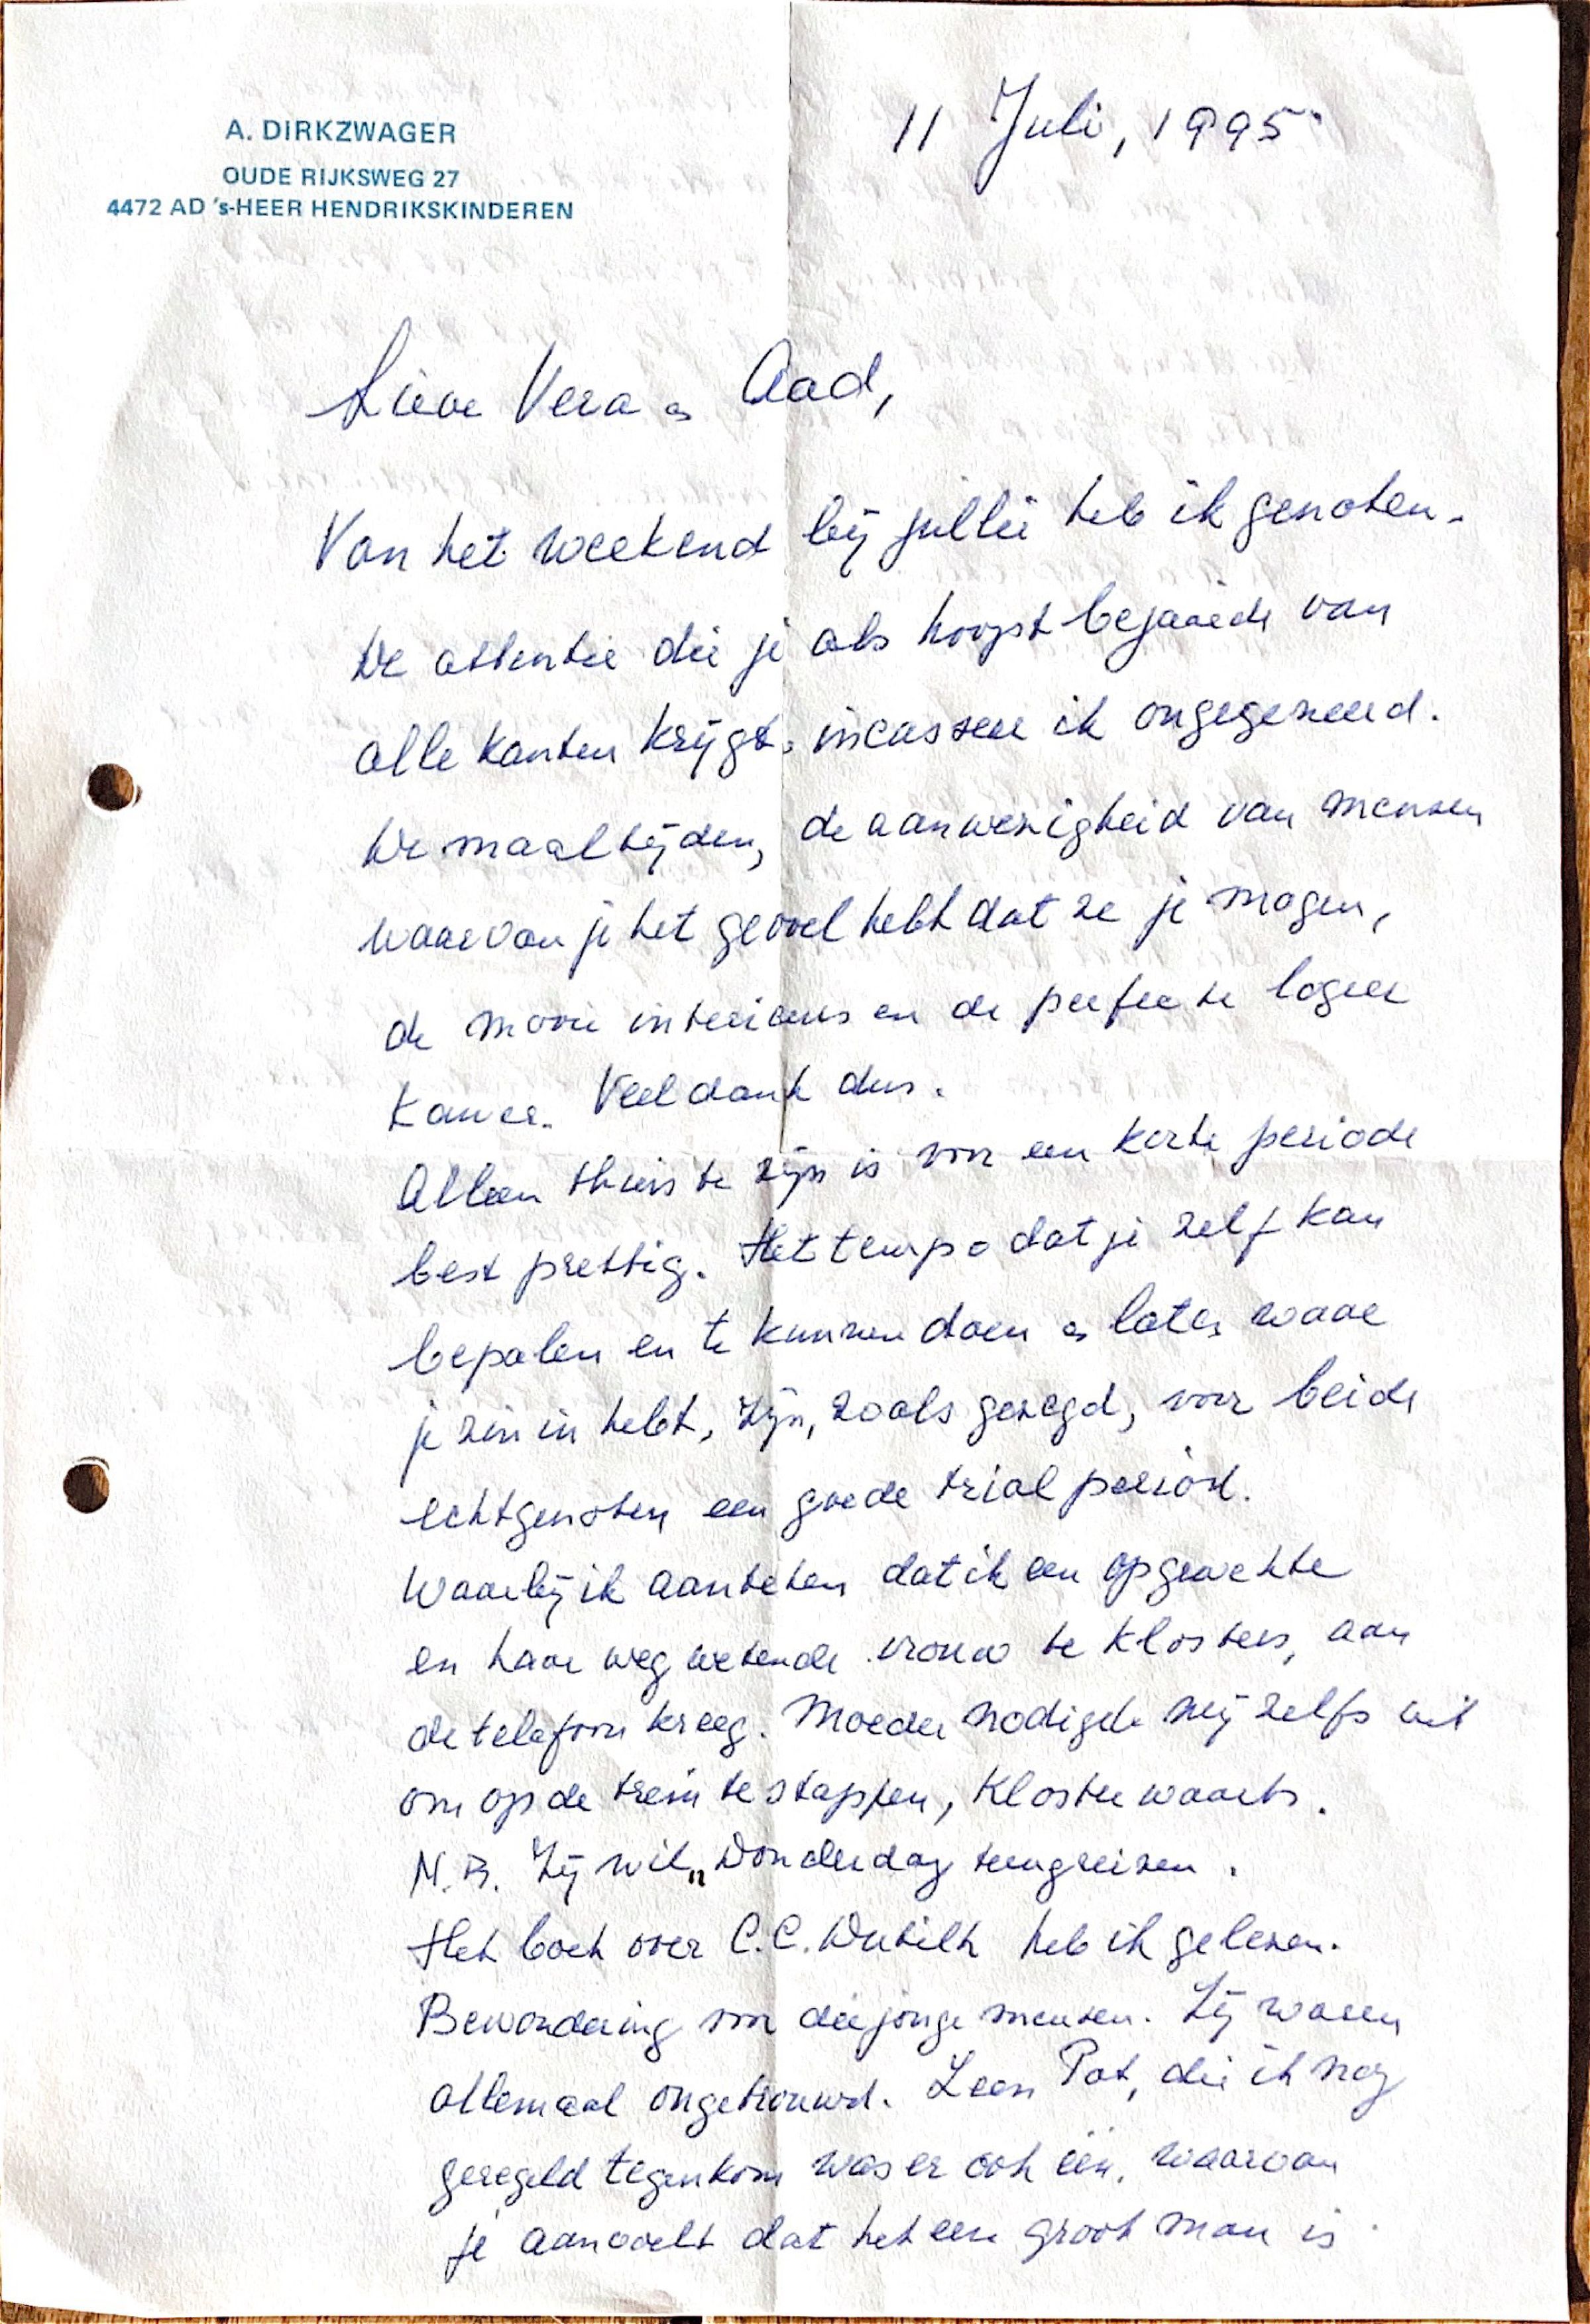 A. DIRKZWAGER
OUDE RIJKSWEG 27
4472 AD 's-HEER HENDRIKSKINDEREN
11 Juli, 1995
Lieve Vera en Aad,
Van het weekend bij jullie heb ik genoten.
De attentie die je als hoogst bejaarde van
alle kanten krijgt, incasseer ik ongegeneerd.
De maaltijden, de aanwezigheid van mensen
waarvan je het gevoel hebt dat ze je mogen,
de mooie interieurs en de perfecte logeer
kamer. Veel dank dus.
Alleen thuis te zijn is voor een korte periode
best prettig. Het tempo dat je zelf kan
bepalen en te kunnen doen en laten waar
je zin in hebt, zijn, zoals gezegd, voor beide
echtgenoten een goede trial period.
Waarbij ik aanteken dat ik een opgewekte
en haar weg wetende vrouw te Klosters, aan
de telefoon kreeg. Moeder nodigde mij zelfs uit
om op de trein te stappen, Kloster waarts.
N.B. Zij wil „Donderdag terugreizen.
Het boek over C.C. Dutilh heb ik gelezen.
Bewondering voor die jonge mensen. Zij waren
allemaal ongetrouwd. Leen Pot, die ik nog
geregeld tegenkom was er ook één, waarvan
je aanvoelt dat het een groot man is.